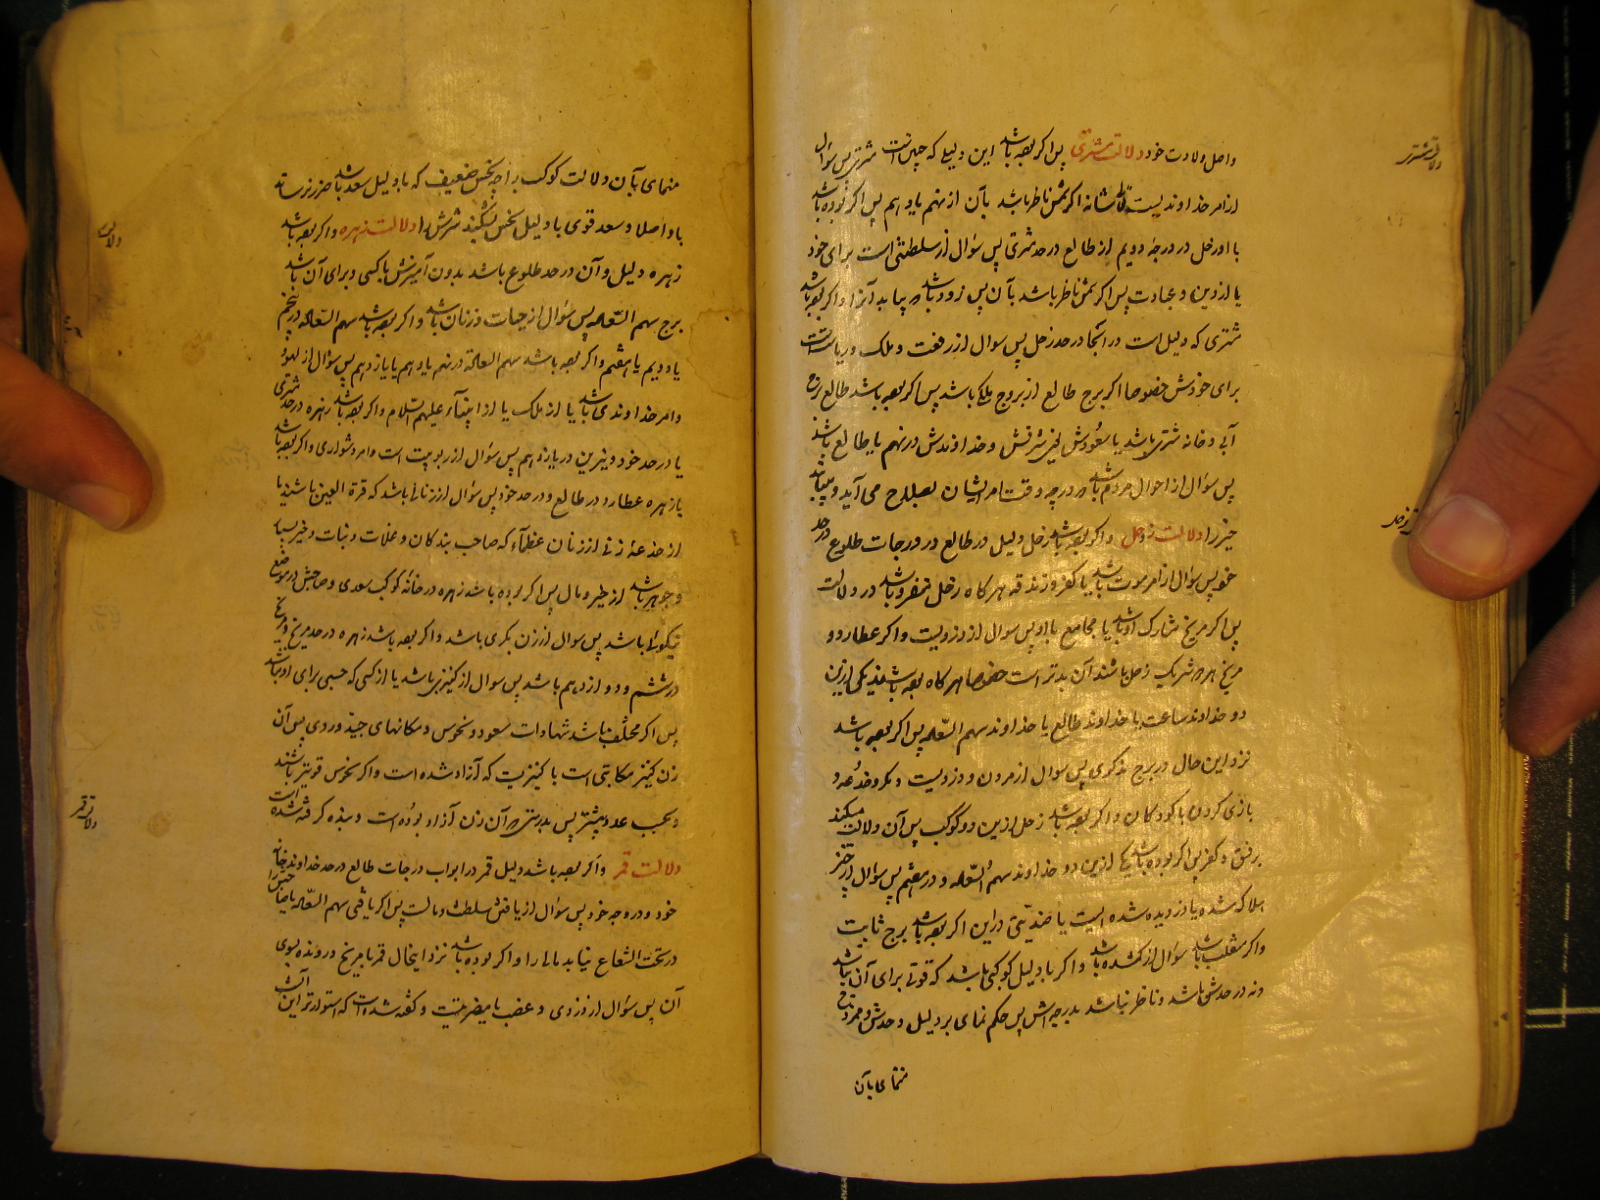 واصل ولادت خود دلالت مشتری پس اگر بوده باشد این دلیلی که چنین است مشتری پس سؤال
از امر خداوندیست شانه اگر شمس ناظر باشد بآن از نهم یا دهم پس اگر نبوده باشد
با او زحل در درجهٔ دویم از طالع در حد مشتری پس سؤال از سلطنتی است برای خود
یا از دین و عبادت پس اگر شمس ناظر باشد بآن پس زود باشد که بیابد آنرا و اگر بوده باشد
مشتری که دلیل است در آنجا در حد زحل پس سؤال از رفعت و ملک و ریاست است
برای خودش خصوصا اگر برج طالع از بروج ملکی باشد پس اگر بوده باشد طالع برج
آبی و خانه مشتری باشد یا سعودش یعنی شرفش و خداوندش در نهم یا طالع باشد
پس سؤال از احوال مردم باشد هر درجه وقت امر ایشان بصلاح می آید و میباشد
خیر را دلالت زحل و اگر بوده باشد زحل دلیل در طالع در درجات طلوع در حد
خود پس سؤال از امر موت باشد یا کفر و زندقه هر گاه زحل منفرد باشد در دلالت
پس اگر مریخ مشارک او باشد یا مجامع با او پس سؤال از دزدیست و اگر عطارد و
مریخ هر دو شریک زحل باشند آن بدتر است خصوصا هر گاه بوده باشند یکی از این
دو خداوند ساعت یا خداوند طالع یا خداوند سهم السّعاده پس اگر بوده باشد
نزد این حال در برج مذکری پس سؤال از مردن و دزدیست و مکر و خدعه و
بازی کردن با کودکان و اگر بوده باشد زحل از این دو کوکب پس آن دلالت میکند
برفتن و کفر پس اگر بوده باشد یکی از این دو خداوند سهم السّعاده و در هفتم پس سؤال از چیز
هلاک شده یا دزدیده شده است یا ضدیتی در این اگر بوده باشد برج ثابت
و اگر منقلب باشد سؤال از گمشده باشد و اگر با دلیل کوکبی باشد که قوتی برای آن باشد
و نه در حدش باشد و ناظر نباشد بدرجه اش پس حکم نمای بر دلیل و حدش و ممزوج
منمای بآن
دلالت مشتری
منمای بآن دلالت کوکب را چه نحس ضعیف که با دلیل سعد باشد ضرر نرساند
باو اصلا و سعد قوی با دلیل نحس بشکند شرش را دلالت زهره و اگر بوده باشد
زهره دلیل و آن در حد طلوع باشد بدون آمیزش با کسی و برای آن باشد
برج سهم السّعاده پس سؤال از جهات و زنان باشد و اگر بوده باشد سهم السّعاده در پنجم
یا دویم یا هفتم و اگر بوده باشد سهم السعاده در نهم یا دهم یا یازدهم پس سؤال از لهو
و امر خداوندی باشد یا از ملک یا از انبیآء علیهم السّلام و اگر بوده باشد زهره در حد مشتری
یا در حد خود و نیرین در یازدهم پس سؤال از ربوبیت است و امر دشواری و اگر بوده باشد
با زهره عطارد در طالع و در حد خود پس سؤال از زنانی باشد که قرة العین باشند یا
از خدعهٔ زنی از زنان عظمآء که صاحب بندگان و غلات و نبات و خیر بسیار
و جوهر باشد از خیر و مال پس اگر بوده باشد زهره در خانهٔ کوکب سعدی و صاحبش در موضع
نیکوئی باشد پس سؤال از زن بکری باشد و اگر بوده باشد زهره در حد مریخ و مریخ
در ششم و دوازدهم باشد پس سؤال از کنیزی باشد یا از کسی که حسبی برای او نباشد
پس اگر مختلف باشد شهادات سعود و نحوس و مکانهای جیّد و ردی پس آن
زن کنیز مکاتبی است یا کنیزیست که آزاد شده است و اگر نحوس قویتر باشند
و بحسب عدد بیشتر پس بدرستی که آن زن آزاد بوده است و بنده گرفته شده است
دلالت قمر و اگر بوده باشد دلیل قمر در ابواب درجات طالع در حد خداوند خانه
خود و در وجه خود پس سؤال از یافتن سلطنت و مالست پس اگر یافتی سهم السّعاده یا صاحبش را
در تحت الشعاع نیابد مالی را و اگر بوده باشد نزد اینحال قمر با مریخ در رونده بسوی
آن پس سؤال از دزدی و غضب یا مضرتیست و گفته شده است که استوارترین آنست
دلالت قمر